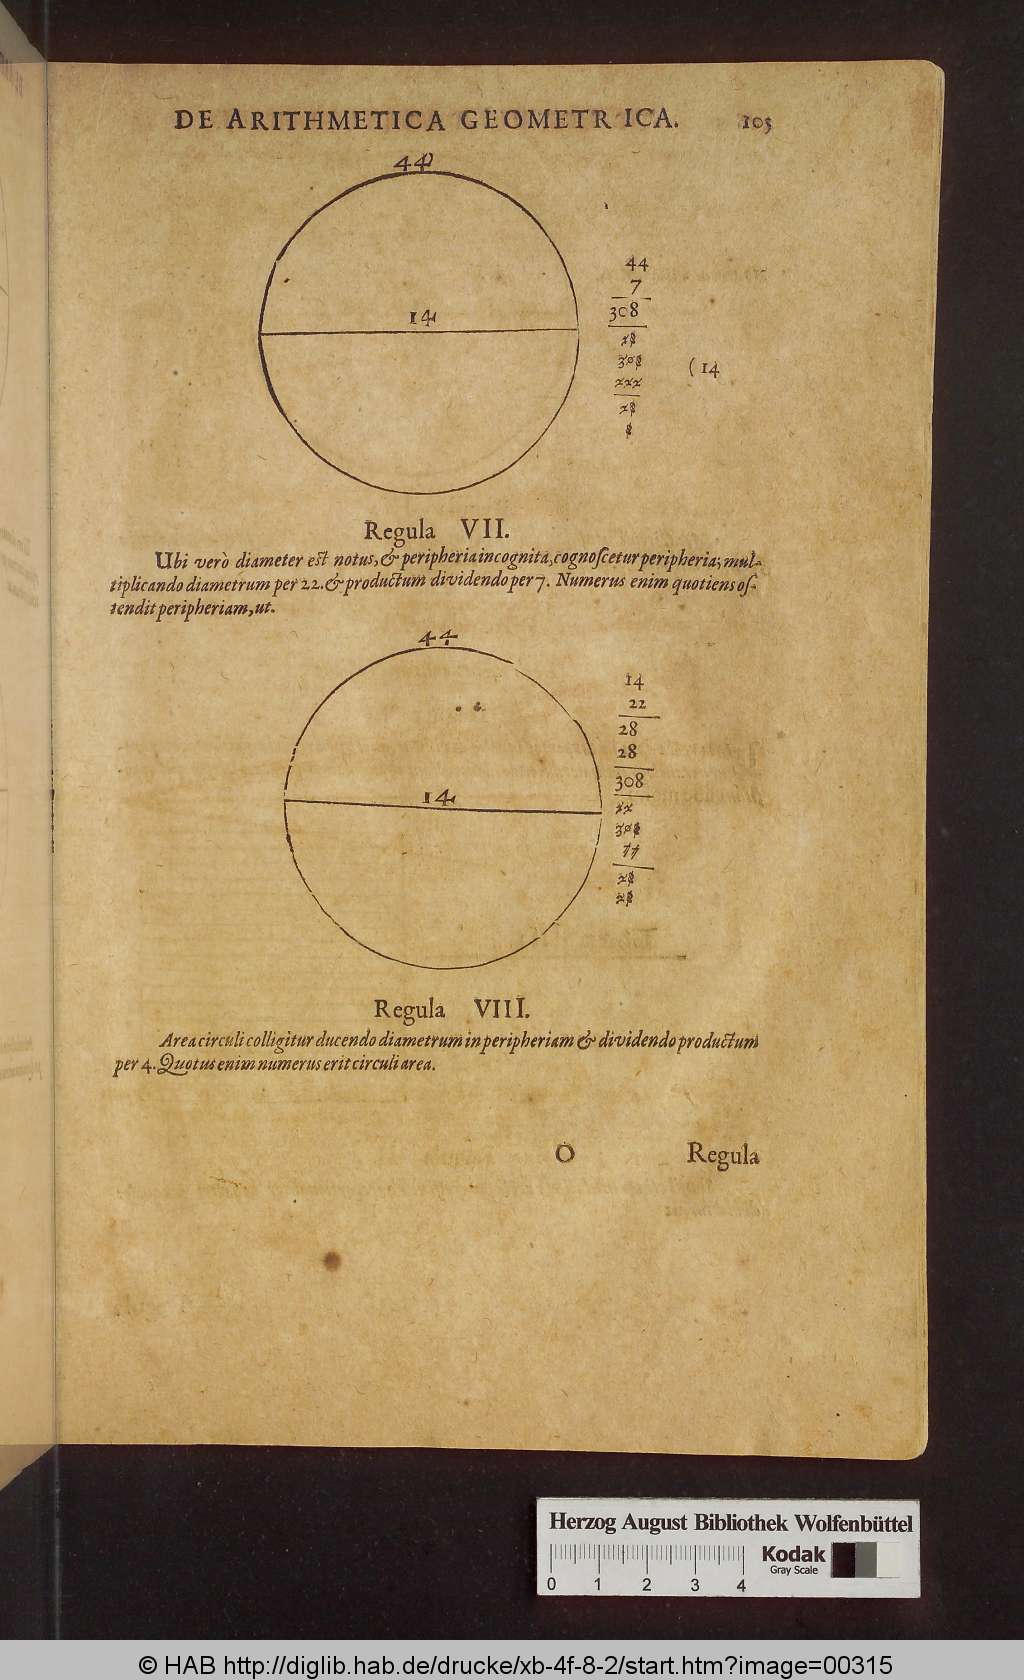 DE ARITHMETICA GEOMETRICA. 103
44
14
44
7
308
(14
Regula VII.
Ubi verò diameter est notus, & peripheria incognita, cognoscetur peripheria; mul-
tiplicando diametrum per 22. & productum dividendo per 7. Numerus enim quotiens os-
tendit peripheriam, ut.
44
14
14
22
28
28
308
Regula VIII.
Area circuli colligitur ducendo diametrum in peripheriam & dividendo productum
per 4. Quotus enim numerus erit circuli area.
O Regula
Herzog August Bibliothek Wolfenbüttel
Kodak
Gray Scale
0 1 2 3 4
© HAB http://diglib.hab.de/drucke/xb-4f-8-2/start.htm?image=00315